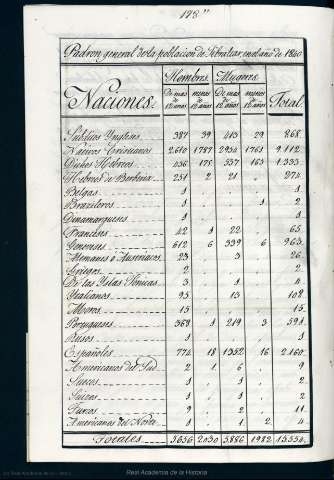 178"
Padron general de la poblacion de Gibraltar, en el año de 1840
Naciones. Hombres. Mugeres. Total.
De mas de 12 años menos de 12 años De mas de 12 años menos de 12 años
Subditos Yngleses 387 39 413 29 868
Nativos Cristianos 2.610 1787 2954 1761 9.112
Dichos Hebreos 456 175 537 165 1.333
Hebreos de Berberia 251 2 21 . 274
Belgas 1 . . . 1
Brazileros . . 1 2
Dinamarqueses 1 . . . 1
Franceses 42 1 22 . 65
Genoveses 612 6 339 6 963
Alemanes ó Austriacos 23 . 3 . 26
Griegos 2 . . . 2
De las Yslas Jonicas 3 . 1 . 4
Ytalianos 95 . 13 . 108
Moros 15 . . . 15
Portugueses 368 1 219 3 591
Rusos 1 . . . 1
Españoles 774 18 1352 16 2.160
Americanos del Sud 2 1 6 . 9
Suecos 1 . 1 . 2
Suizos 1 . 1 . 2
Turcos 9 . 2 . 11
Americanos del Norte 1 . 1 2 4
Totales 5656 2030 5886 1982 15.554
Real Academia de la Historia